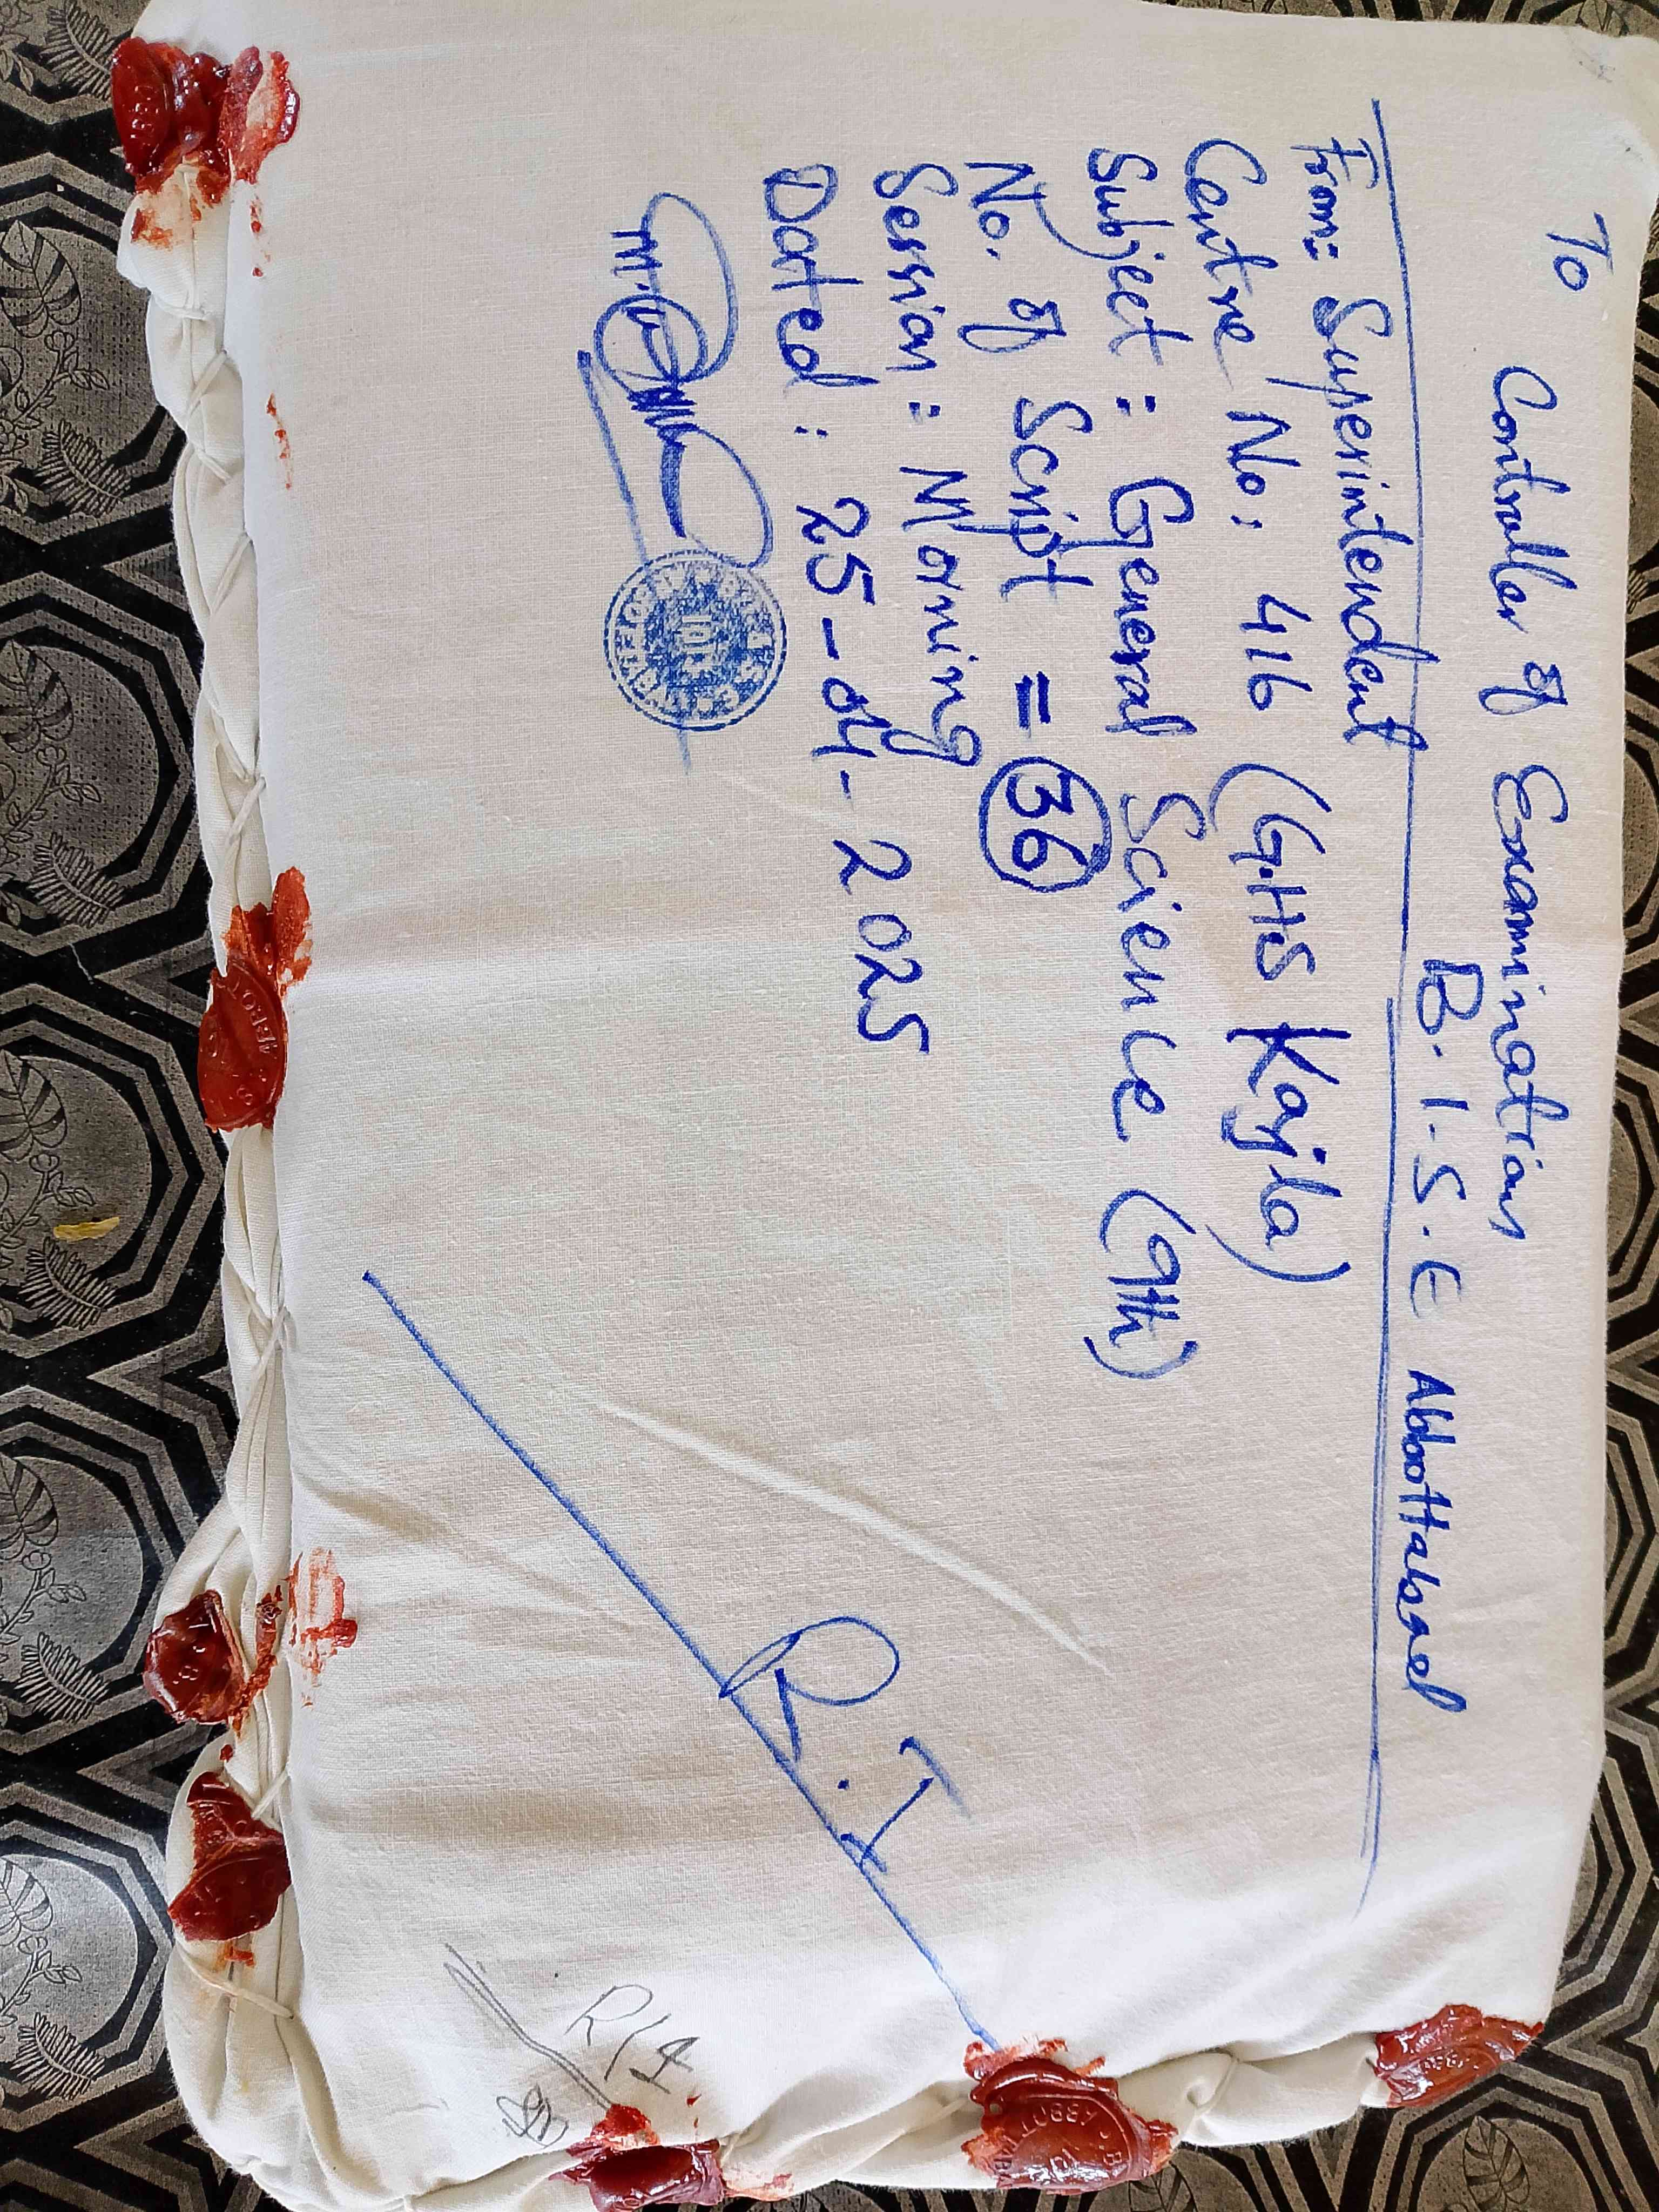 To
Controller of Examination
B.I.S.E Abbottabad
From: Superintendent
Centre No: 416 (G.HS Kajla)
Subject: General Science (9th)
No. of Script = 36
Session: Morning
Dated: 25-04-2025
R.I